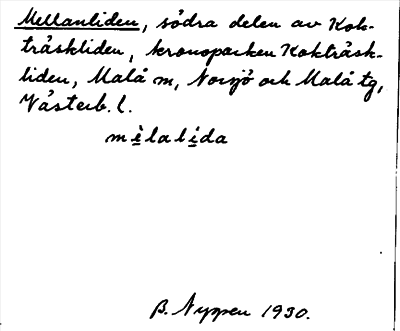 Mellanliden, södra delen av Kok-
träskliden, kronoparken Kokträsk-
liden, Malå sn, Norsjö och Malå tg,
Västerb. l.
mèlalída
B. Nyppen 1930.